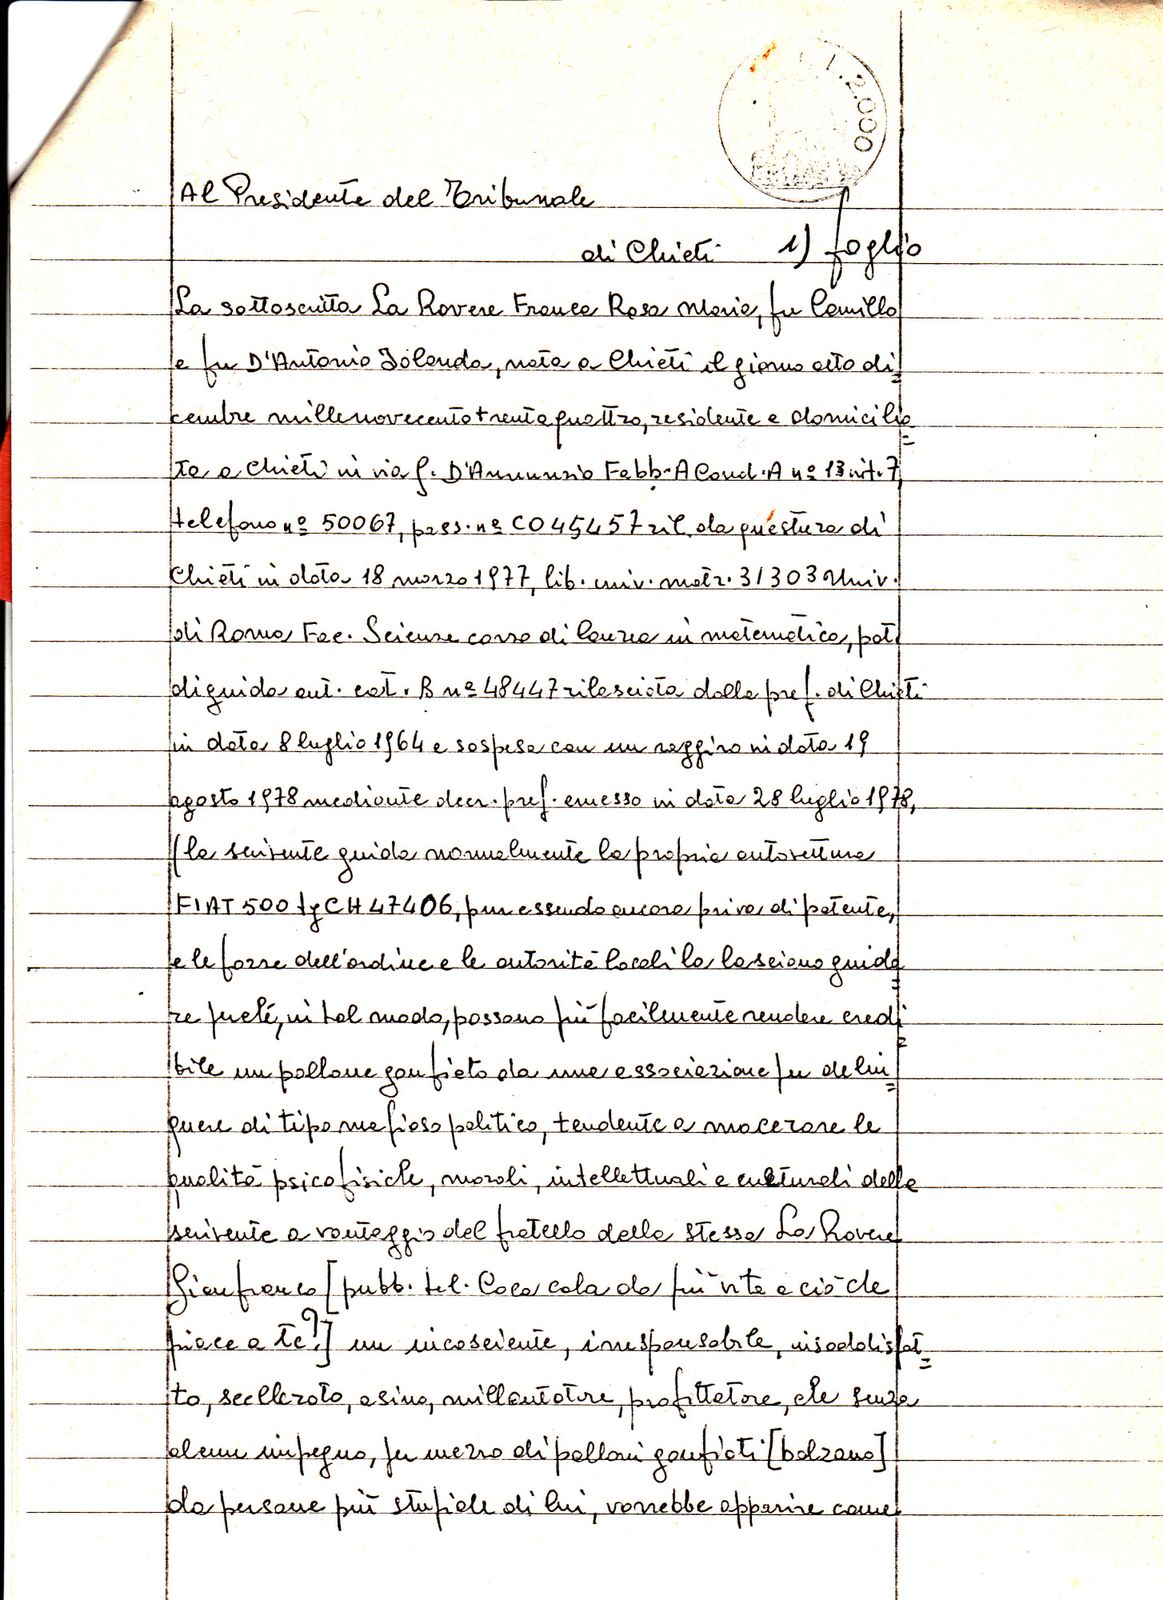 L. 2.000
Al Presidente del Tribunale
di Chieti 1) foglio
La sottoscritta La Rovere Franca Rosa Maria, fu Camillo
e fu D'Antonio Iolanda, nata a Chieti il giorno otto di=
cembre millenovecentotrentaquattro, residente e domicilia=
ta a Chieti in via G. D'Annunzio Fabb. A Cond. A nº 13 int. 7
telefono nº 50067, pass. nº C045457 ril. da questura di
Chieti in data 18 marzo 1977, lib. univ. matr. 31303 Univ.
di Roma Fac. Scienze corso di laurea in matematica, pat.
di guida aut. cat. B nº 48447 rilasciata dalla pref. di Chieti
in data 8 luglio 1964 e sospesa con un raggiro in data 19
agosto 1978 mediante decr. pref. emesso in data 28 luglio 1978,
(la scrivente guida normalmente la propria autovettura
FIAT 500 tg CH 47406, pur essendo ancora priva di patente,
e le forze dell'ordine e le autorità locali la lasciano guida=
re perché, in tal modo, possono più facilmente rendere credi=
bile un pallone gonfiato da una associazione per delin=
quere di tipo mafioso politico, tendente a macerare le
qualità psicofisiche, morali, intellettuali e culturali della
scrivente a vantaggio del fratello della stessa La Rovere
Gianfranco [pubb. tel. Coca cola da più vita a ciò che
piace a te?!] un incosciente, irresponsabile, insoddisfat=
to, scellerato, asino, millantatore, profittatore, che senza
alcun impegno, per mezzo di palloni gonfiati [bolzano]
da persone più stupide di lui, vorrebbe apparire come